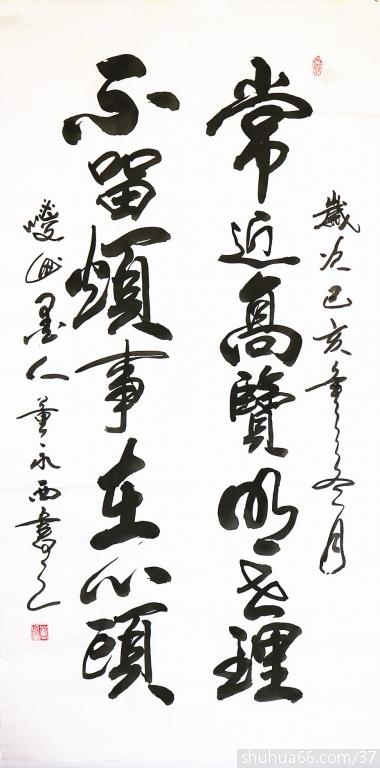 歲次己亥年之冬月
常近高覽明世理
不留煩事在心頭
墨人董永西書之
shuhua66.com/37